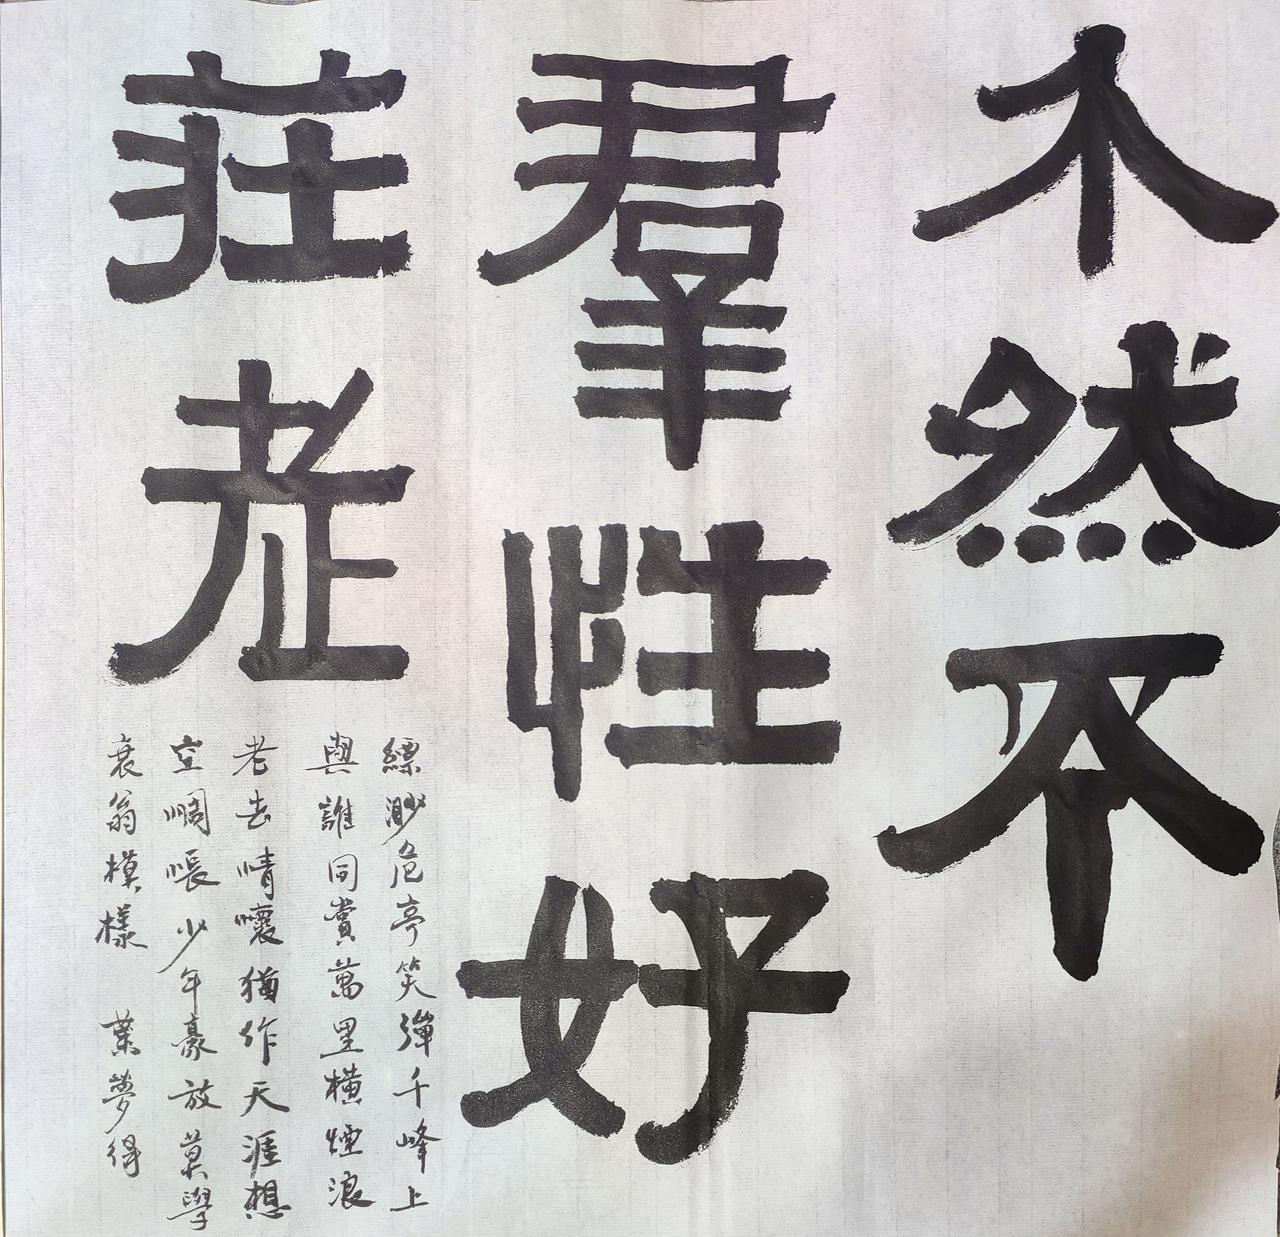 介然不
羣性好
莊老
縹渺危亭笑彈千峰上
與誰同賞萬里橫煙浪
老去情懷猶作天涯想
空惆悵少年豪放莫學
衰翁模樣 葉夢得